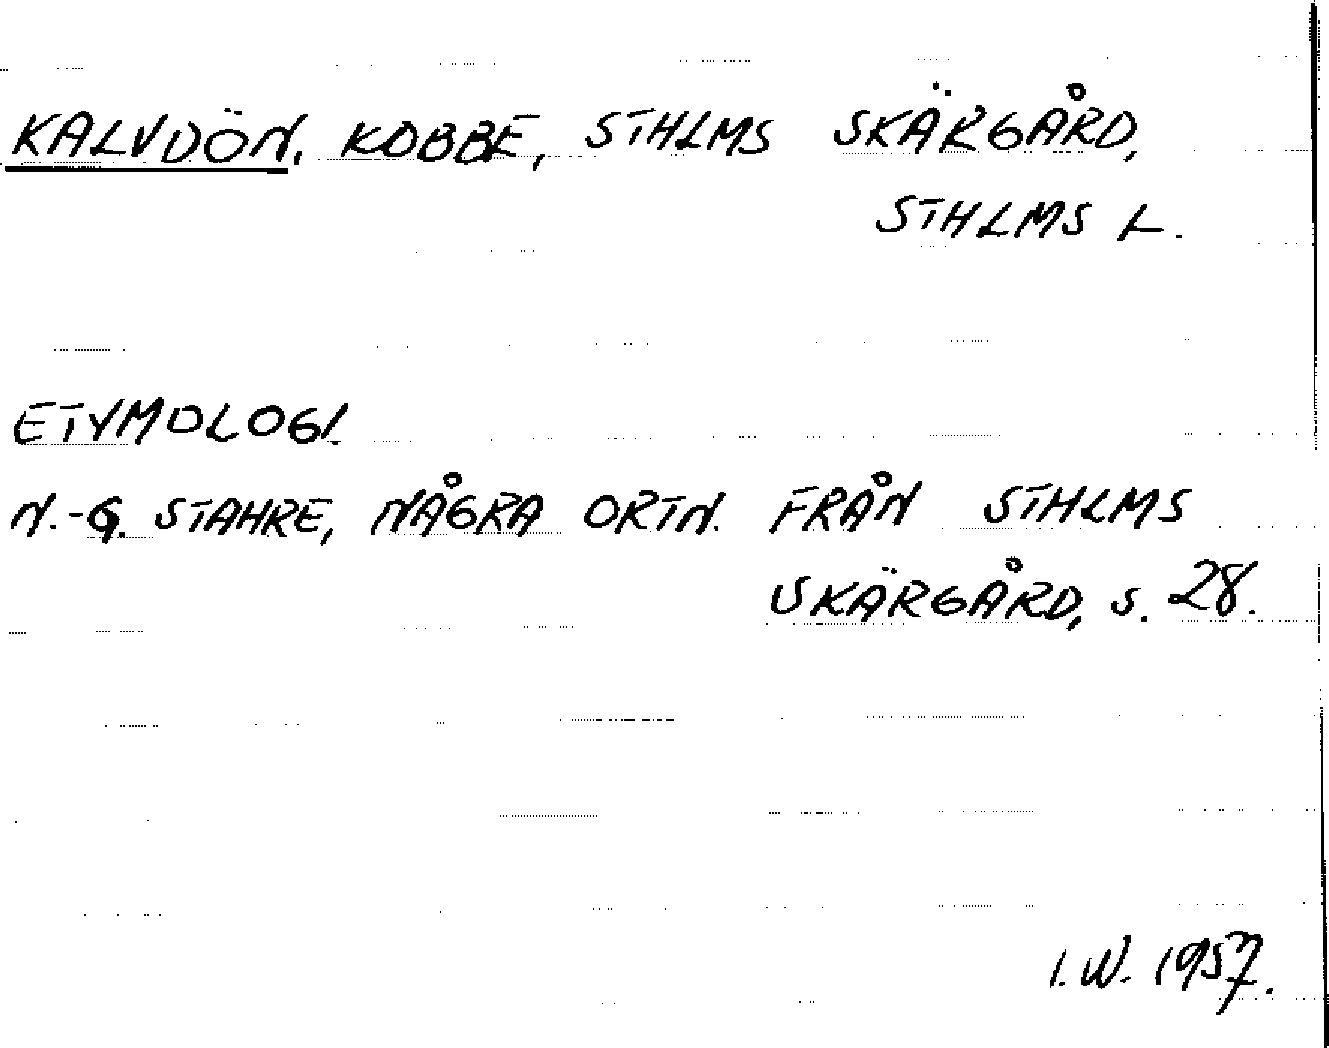 KALVDÖN. KOBBE, STHLMS SKÄRGÅRD,
STHLMS L.
ETYMOLOGI.
N.-G. STAHRE, NÅGRA ORTN. FRÅN STHLMS
SKÄRGÅRD, S. 28.
I.W. 1957.